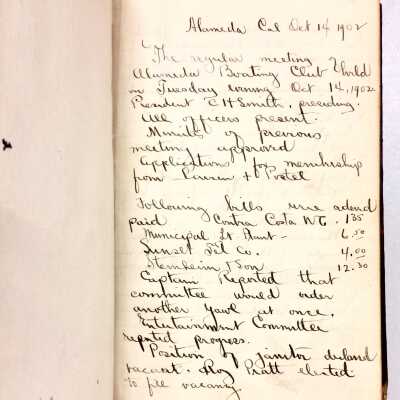 Alameda Cal Oct 14 1902
The regular meeting
Alameda Boating Club held
on Tuesday evening Oct 14, 1902
President E H Smith, presiding.
All officers present.
Minutes of previous
meeting approved
Applications for membership
from & Postel
Following bills were
paid Contra Costa W Co. 1.35
Municipal Lt Plant - 6.50
Sunset Tel Co. 4.00
Sternheim & Son 12.30
Captain Reported that
committee would order
another yawl at once.
Entertainment Committee
reported progress.
Position of janitor declared
vacant. Roy Pratt elected
to fill vacancy.